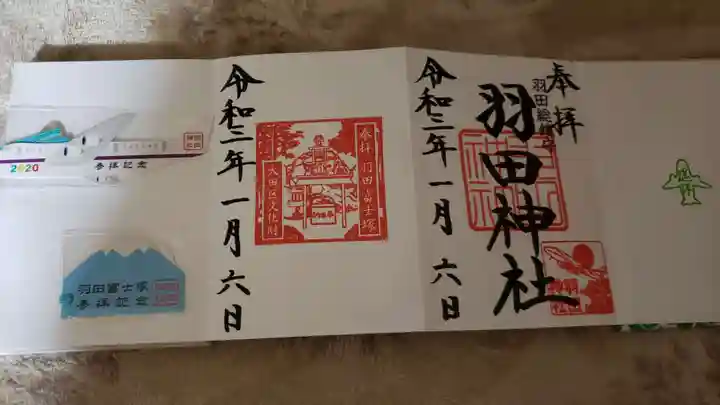 奉拝
羽田総鎮守
羽田神社
令和二年一月六日
奉拝 羽田富士塚
大田区文化財
令和二年一月六日
2020
参拝記念
羽田富士塚
参拝記念